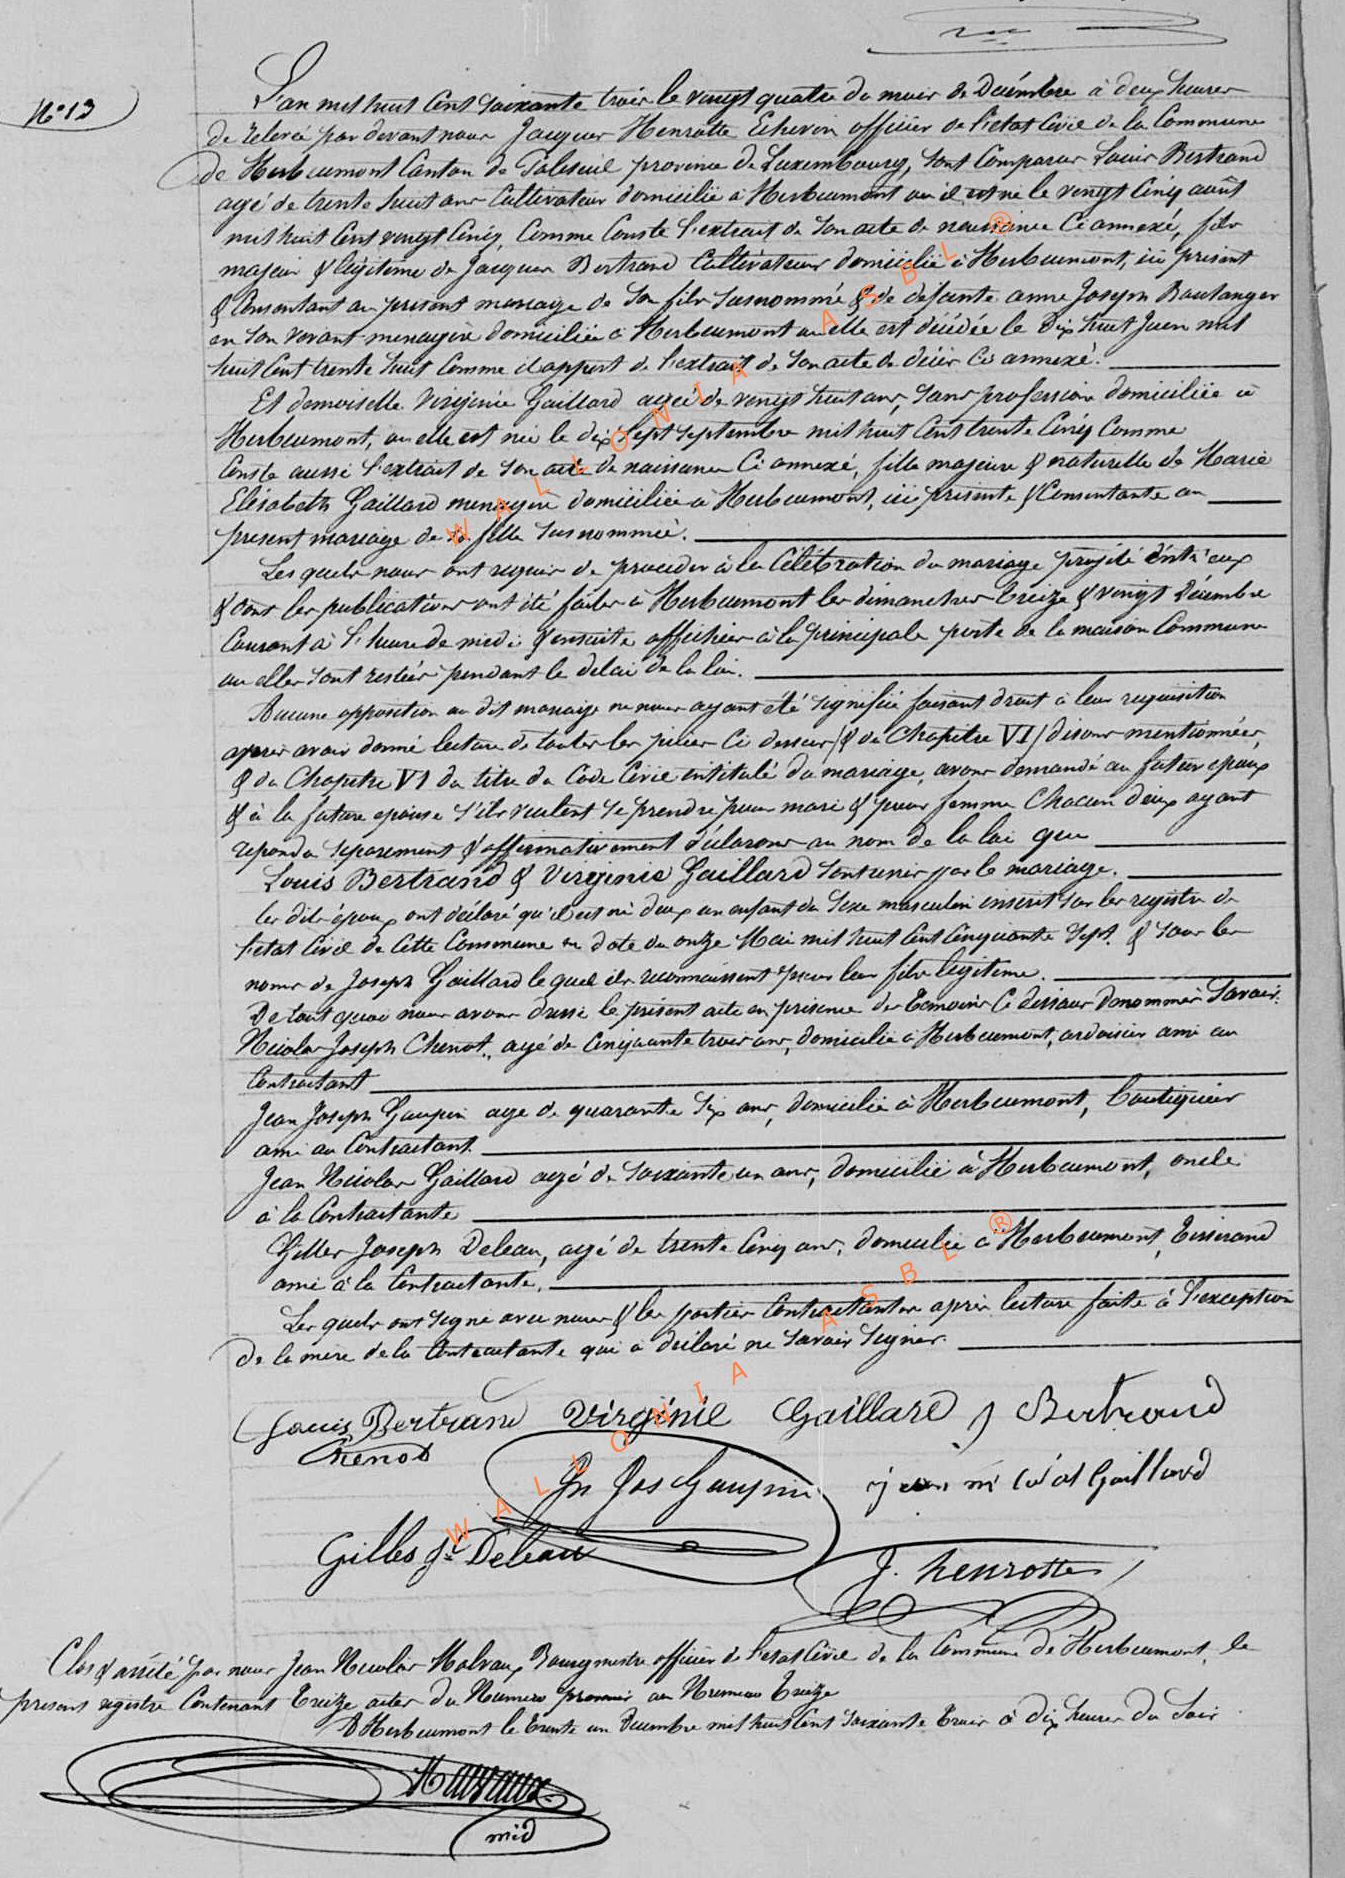 N° 13
L'an mil huit Cent soixante trois le vingt quatre du mois de Decémbre à deux heures
de relevée par devant nous Jacques Henrotte Echevin officier de l'etat Civil de la Commune
de Herbeumont Canton de Paliseul province de Luxembourg, sont Comparus Louis Bertrand
agé de trente huit ans Cultivateur domicilié à Herbeumont ou il est né le vingt Cinq août
mil huit Cent vingt Cinq, Comme Conste l'extrait de son acte de naissance Ci annexé, fils
majeur & légitime de Jacques Bertrand Cultivateur domicilié à Herbeumont, ici présent
& Consentant au present mariage de son fils susnommé & de défunte anne Joseph Boulanger
en son vivant menagère domiciliée à Herbeumont ou elle est décédée le Dix huit Juin mil
huit Cent trente huit Comme il appert de l'extrait de son acte de décès Ci annexé.
Et demoiselle Virginie Gaillard agée de vingt huit ans, sans profession domiciliée à
Herbeumont, ou elle est née le dix Sept Septembre mil huit Cent trente Cinq Comme
Conste aussi l'extrait de son acte de naissance Ci annexé, fille majeure & naturelle de Marie
Elisabeth Gaillard menagère domiciliée à Herbeumont, ici présente & Consentante au
present mariage de sa fille susnommée.
Les quels nous ont requis de proceder à la Célébration du mariage projété éntr'eux
& dont les publications ont été faites à Herbeumont les dimanches treize & vingt Décembre
Courant à l'heure de midi & ensuite affichées à la principale porte de la maison Commune
ou elles sont restées pendant le delai de la loi.
Aucune opposition au dit mariage ne nous ayant été signifiée faisant droit à leur requisition
apres avoir donné lecture de toutes les pièces Ci dessus (& du Chapitre VI) disons mentionnées,
& du Chapitre VI du titre du Code Civil intitulé du mariage, avons demandé au futur epoux
& à la future epouse s'ils veulent se prendre pour mari & pour femme Chacun deux ayant
repondu separement & affirmativement déclarons au nom de la loi que
Louis Bertrand & Virginie Gaillard sont unis par le mariage.
les dits époux ont déclaré qu'il est né deux un enfant du Sexe masculin inscrit sur les registre de
l'etat Civil de Cette Commune en date du onze Mai mil huit Cent Cinquante Sept. & sous les
noms de Joseph Gaillard le quel ils reconnaissent pour leur fils légitime.
De tout quoi nous avons dressé le présent acte en présence des Temoins Ci dessous denommés Savoir:
Nicolas Joseph Chenot, agé de Cinquante trois ans, domicilié à Herbeumont, ardoisier ami au
Contractant
Jean Joseph Goupin age de quarante Six ans, domicilié à Herbeumont, boutiquier
ami au Contractant.
Jean Nicolas Gaillard agé de soixante un ans, domicilié à Herbeumont, oncle
à la Contractante
Gilles Joseph Deleau, agé de trente Cinq ans, domicilié à Herbeumont, tisserand
ami à la Contractante.
Les quels ont signé avec nous & les parties Contractantes après lecture faite à l'exception
de la mère de la Contractante qui à déclaré ne savoir signer.
Louis Bertrand Virginie Gaillard J Bertrand
Chenot
Jn Jos Goupin jean ni co'as Gaillard
Gilles Jh Deleau
J. henrotte
Clos & arrêté par nous Jean Nicolas Malvaux Bourgmestre officier de l'etat Civil de la Commune de Herbeumont, le
present registre Contenant Treize actes du Numero premier au Numero Treize
A Herbeumont le trente un Decembre mil huit Cent soixante Trois à dix heures du Soir
Malvaux
WALLONIA ASBL ®
WALLONIA ASBL ®